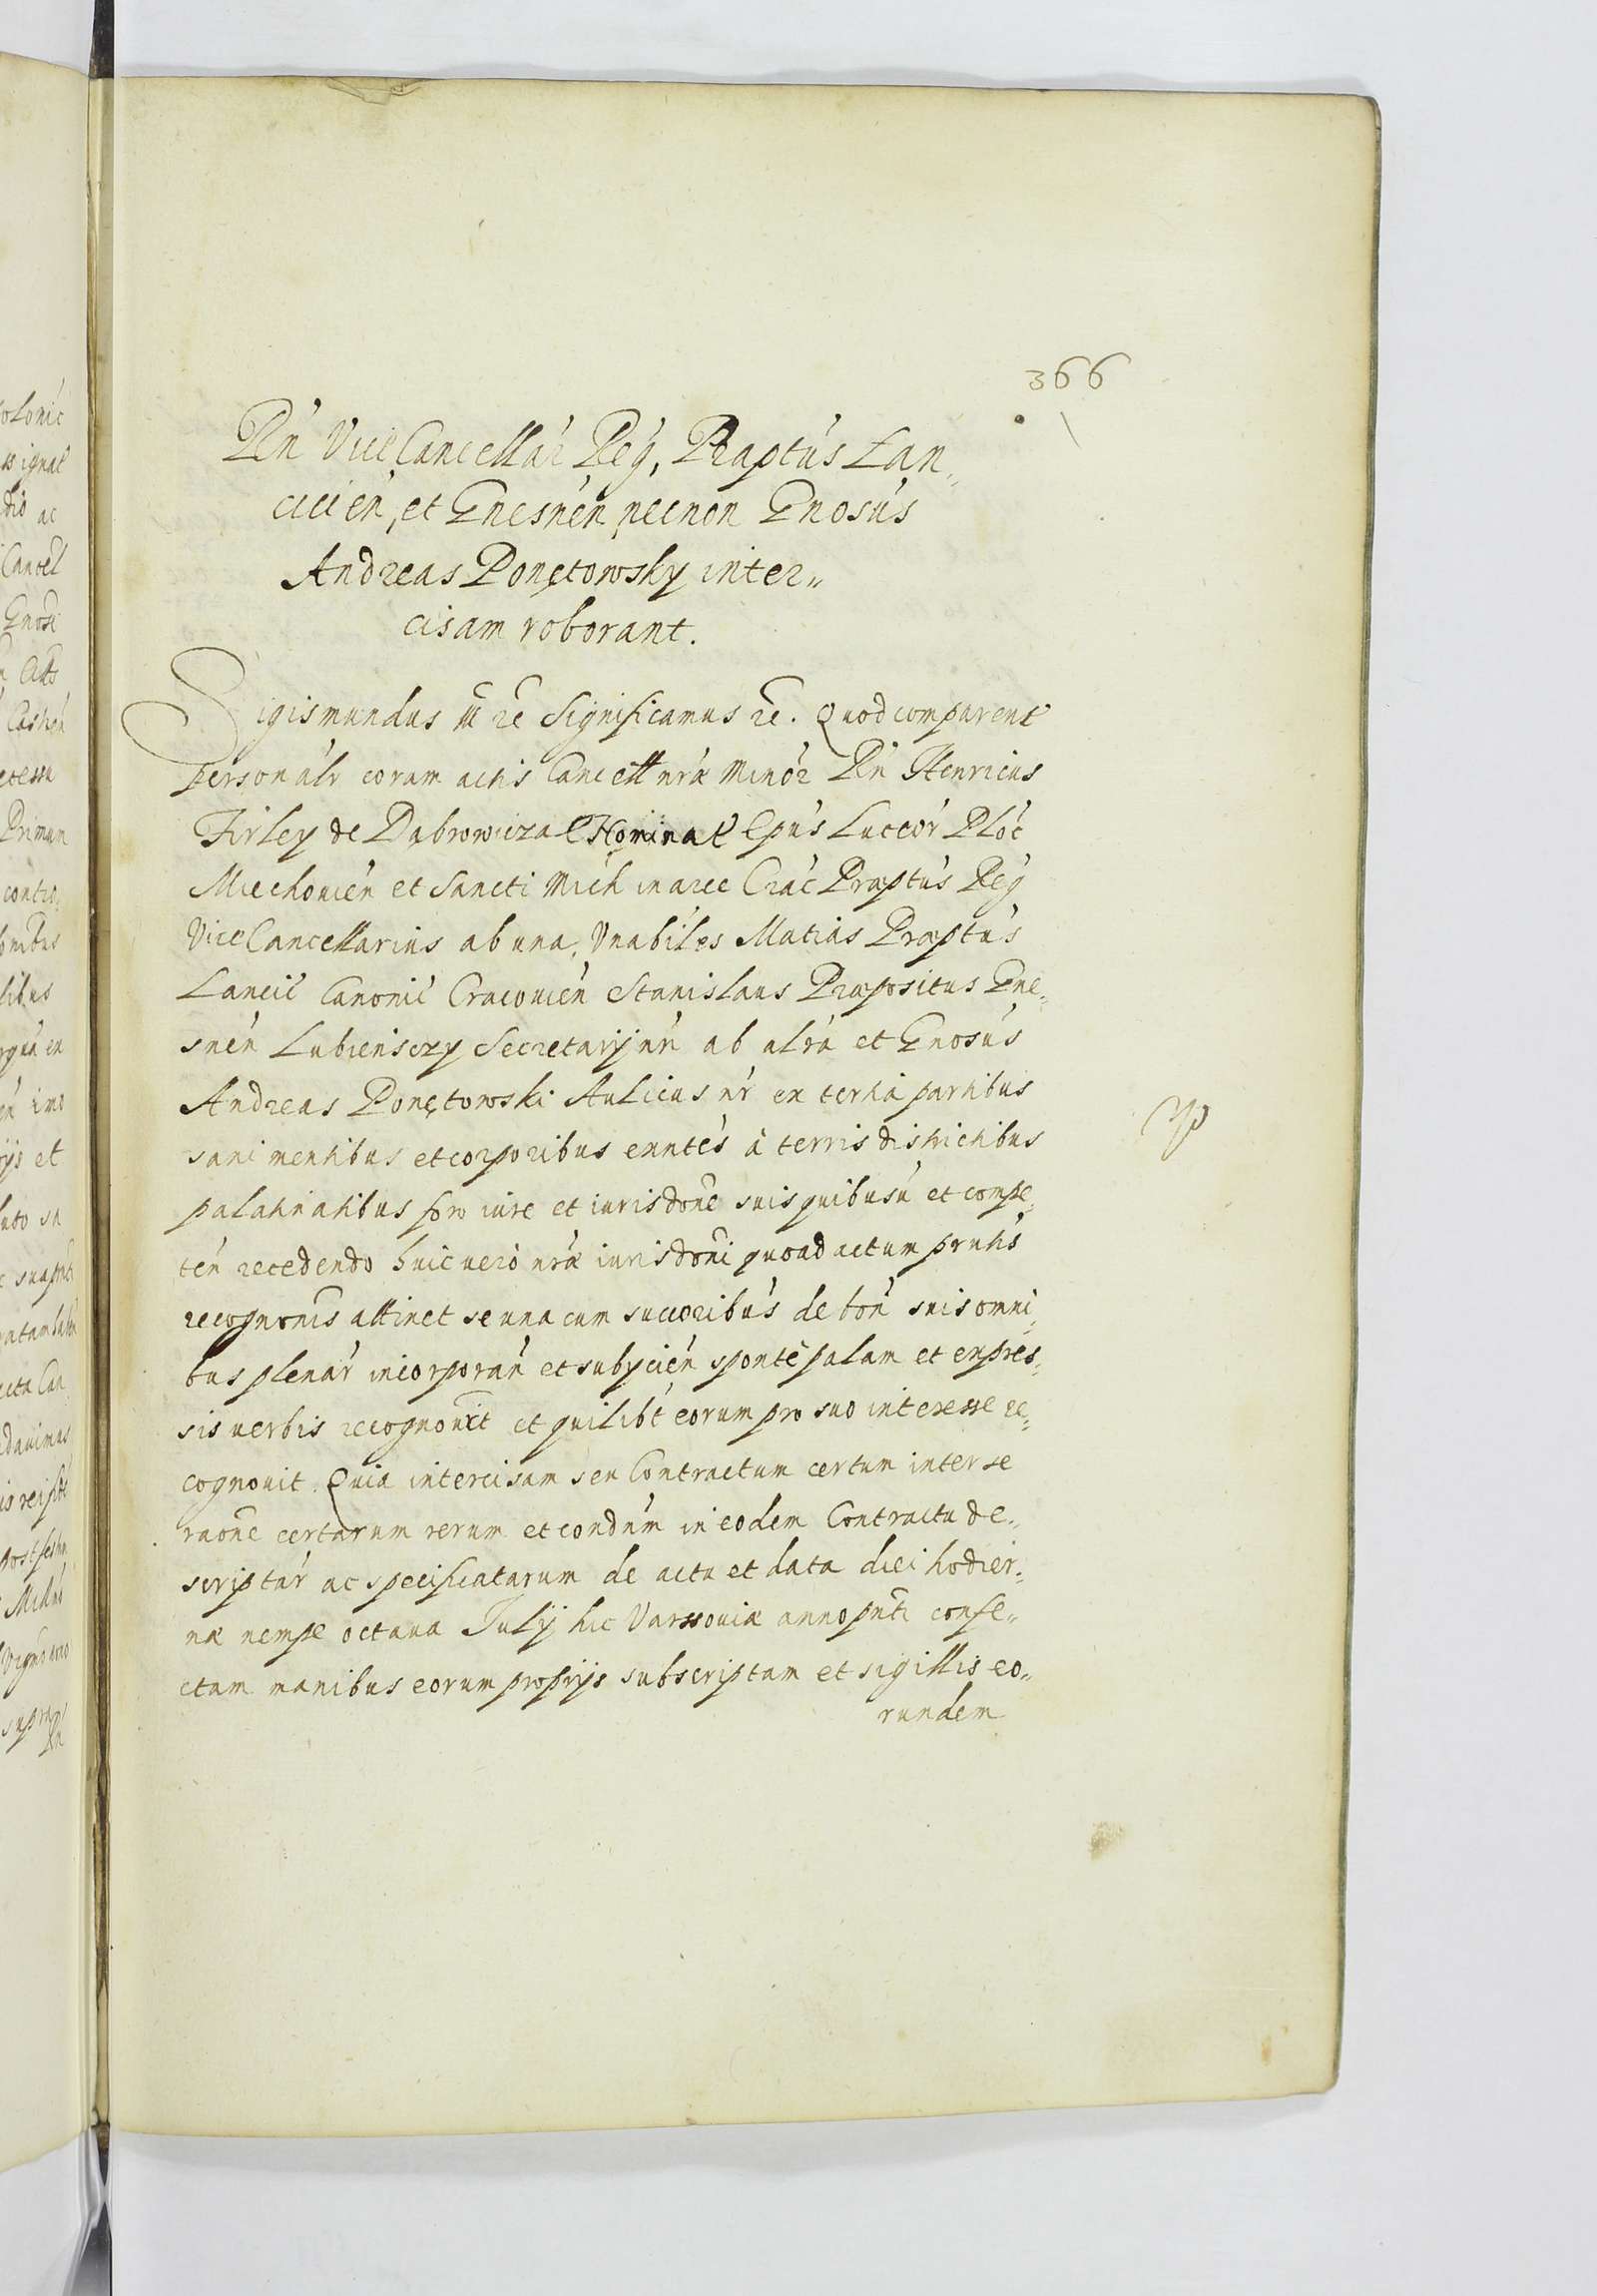 366
Rn̄ ViceCancellar Reg, Praptus Lan„
cicien, et Gnesnen necnon Gnosus
Andreas Ponętowsky inter„
cisam roborant.
Sigismundus III ꝛc Significamus ꝛc. Quod comparent
personalr coram actis Cancell nræ Minor Rn̄ Henricus
Firley de Dąbrowicza Nominat Epus Luceor Ploc
Miechouien et Sancti Mich in arce Crac Præptus Reg
ViceCancellarius ab una, Vnabiles Matias Præptus
Lancic Canonic Cracouien Stanislaus Præpositus Gne„
snen Lubiensczy Secretarij nri ab altra et Gnosus
Andreas Ponętowski Aulicus nr ex tertia partibus
sani mentibus et corporibus exntes à terris districtibus
palatinatibus foro iure et iurisdone suis quibusu et compe„
ten recedendo huic vero nræ iurisdoni quoad actum pruntis
recognonis attinet se una cum succoribus de bon suis omni„
bus plenar incorporan et subÿcien sponte palam et expres„
sis uerbis recognouit et quilibt eorum pro suo interesse re„
cognouit. Quia intercisam seu Contractum certum inter se
raone certarum rerum et condnum in eodem Contractu de„
scriptar ac specificatarum de actu et data diei hodier„
næ nempe octaua Julÿ hic Varssouiæ anno pnti confe„
ctam manibus eorum proprÿs subscriptam et sigillis eo„
rundem